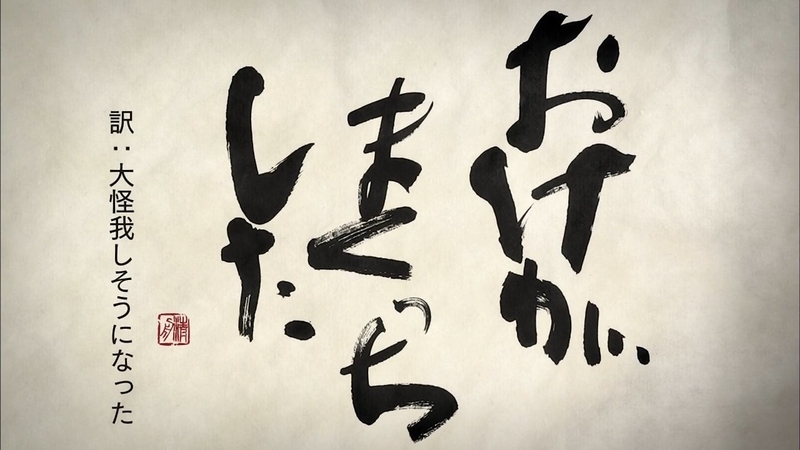 おけが
まくっち
した
訳：大怪我しそうになった
清舟